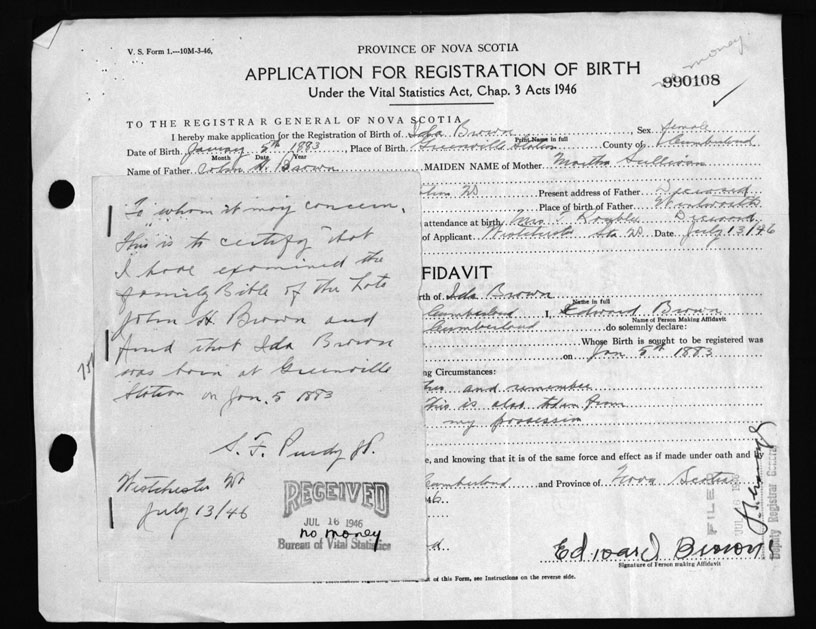 V. S. Form 1.—10M-3-46,
PROVINCE OF NOVA SCOTIA
money.
APPLICATION FOR REGISTRATION OF BIRTH
990108
Under the Vital Statistics Act, Chap. 3 Acts 1946
TO THE REGISTRAR GENERAL OF NOVA SCOTIA
I hereby make application for the Registration of Birth of Ida Brown, Sex female
Print Name in full
Date of Birth January 5th 1883, Place of Birth Greenville Station County of Cumberland
Month Date Year
Name of Father John H. Brown MAIDEN NAME of Mother Martha Sullivan
Present address of Father Deceased
Place of Birth of Father Wentworth
attendance at birth Mrs T Deceased
of Applicant Westchester Sta Date July 13/46
To whom it may concern,
This is to certify that
I have examined the
family Bible of the late
John H Brown and
find that Ida Brown
was born at Greenville
Station on Jan. 5 1883
S. F. Purdy JP.
Westchester
July 13/46
RECEIVED
JUL 16 1946
no money
Bureau of Vital Statistics
FFIDAVIT
rth of Ida Brown
Name in full
Cumberland I, Edward Brown
Name of Person Making Affidavit
Cumberland do solemnly declare:
Whose Birth is sought to be registered was
on Jan 5th 1883
ng Circumstances:
and remember
This is also taken from
my possession
e, and knowing that it is of the same force and effect as if made under oath and by
Cumberland and Province of Nova Scotia
46
FILED
JUL 16
Deputy Registrar General
Edward Brown
Signature of Person making Affidavit
of this Form, see Instructions on the reverse side.